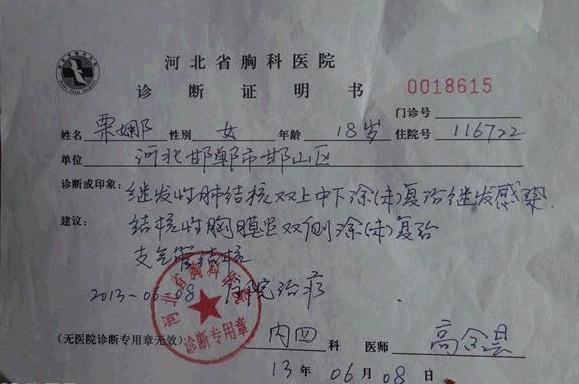 河北省胸科医院
诊断证明书 0018615
门诊号
姓名 栗娜 性别 女 年龄 18岁 住院号 116722
单位 河北邯郸市邯山区
诊断或印象: 继发性肺结核双上中下涂(未)复治继发感染
建议: 结核性胸膜炎双侧涂(未)复治
支气管结核
2013-06-08 住院治疗
河北省胸科医院
诊断专用章
(无医院诊断专用章无效) 内四 科 医师
13 年 06 月 08 日